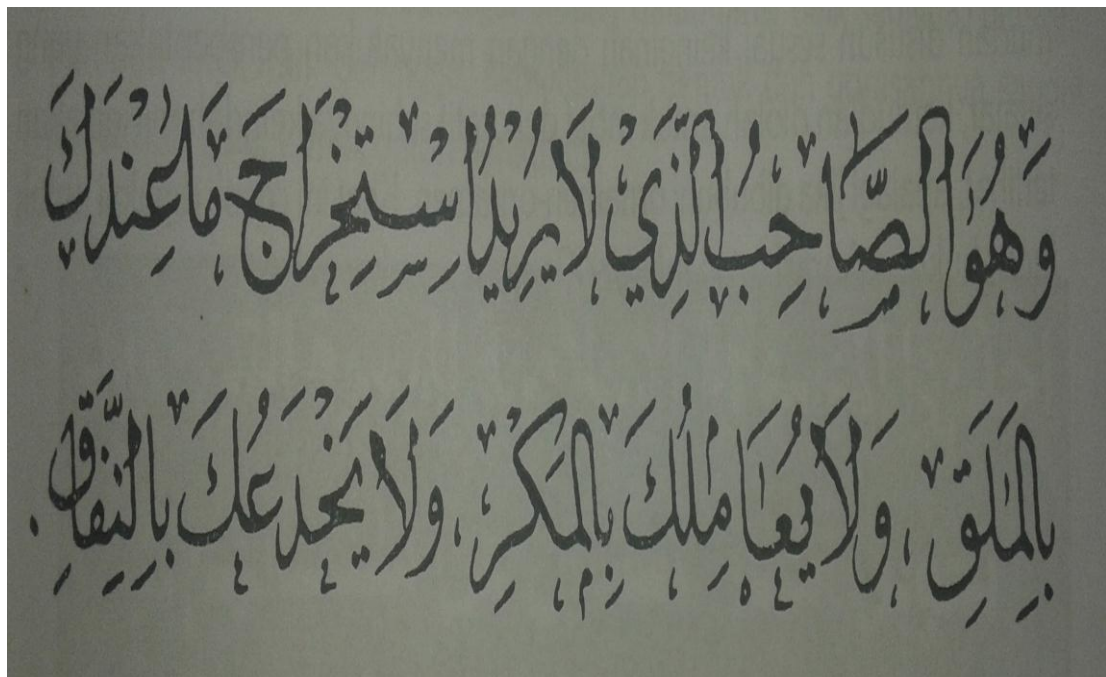 وَهُوَ الصَّاحِبُ الَّذِيْ لَا يُرِيْدُ اسْتِخْرَاجَ مَا عِنْدَكَ
بِالْمَلَقِ، وَلَا يُعَامِلُكَ بِالْمَكْرِ، وَلَا يَخْدَعُكَ بِالنِّفَاقِ.